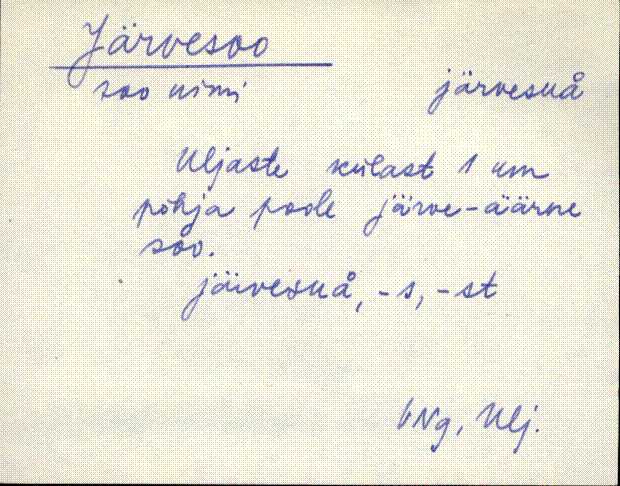 Järvesoo
soo nimi järvesuå
Uljaste külast 1 km
põhja poole järve-äärne
soo.
järvesuå, -s, -st
VNg, Ulj.